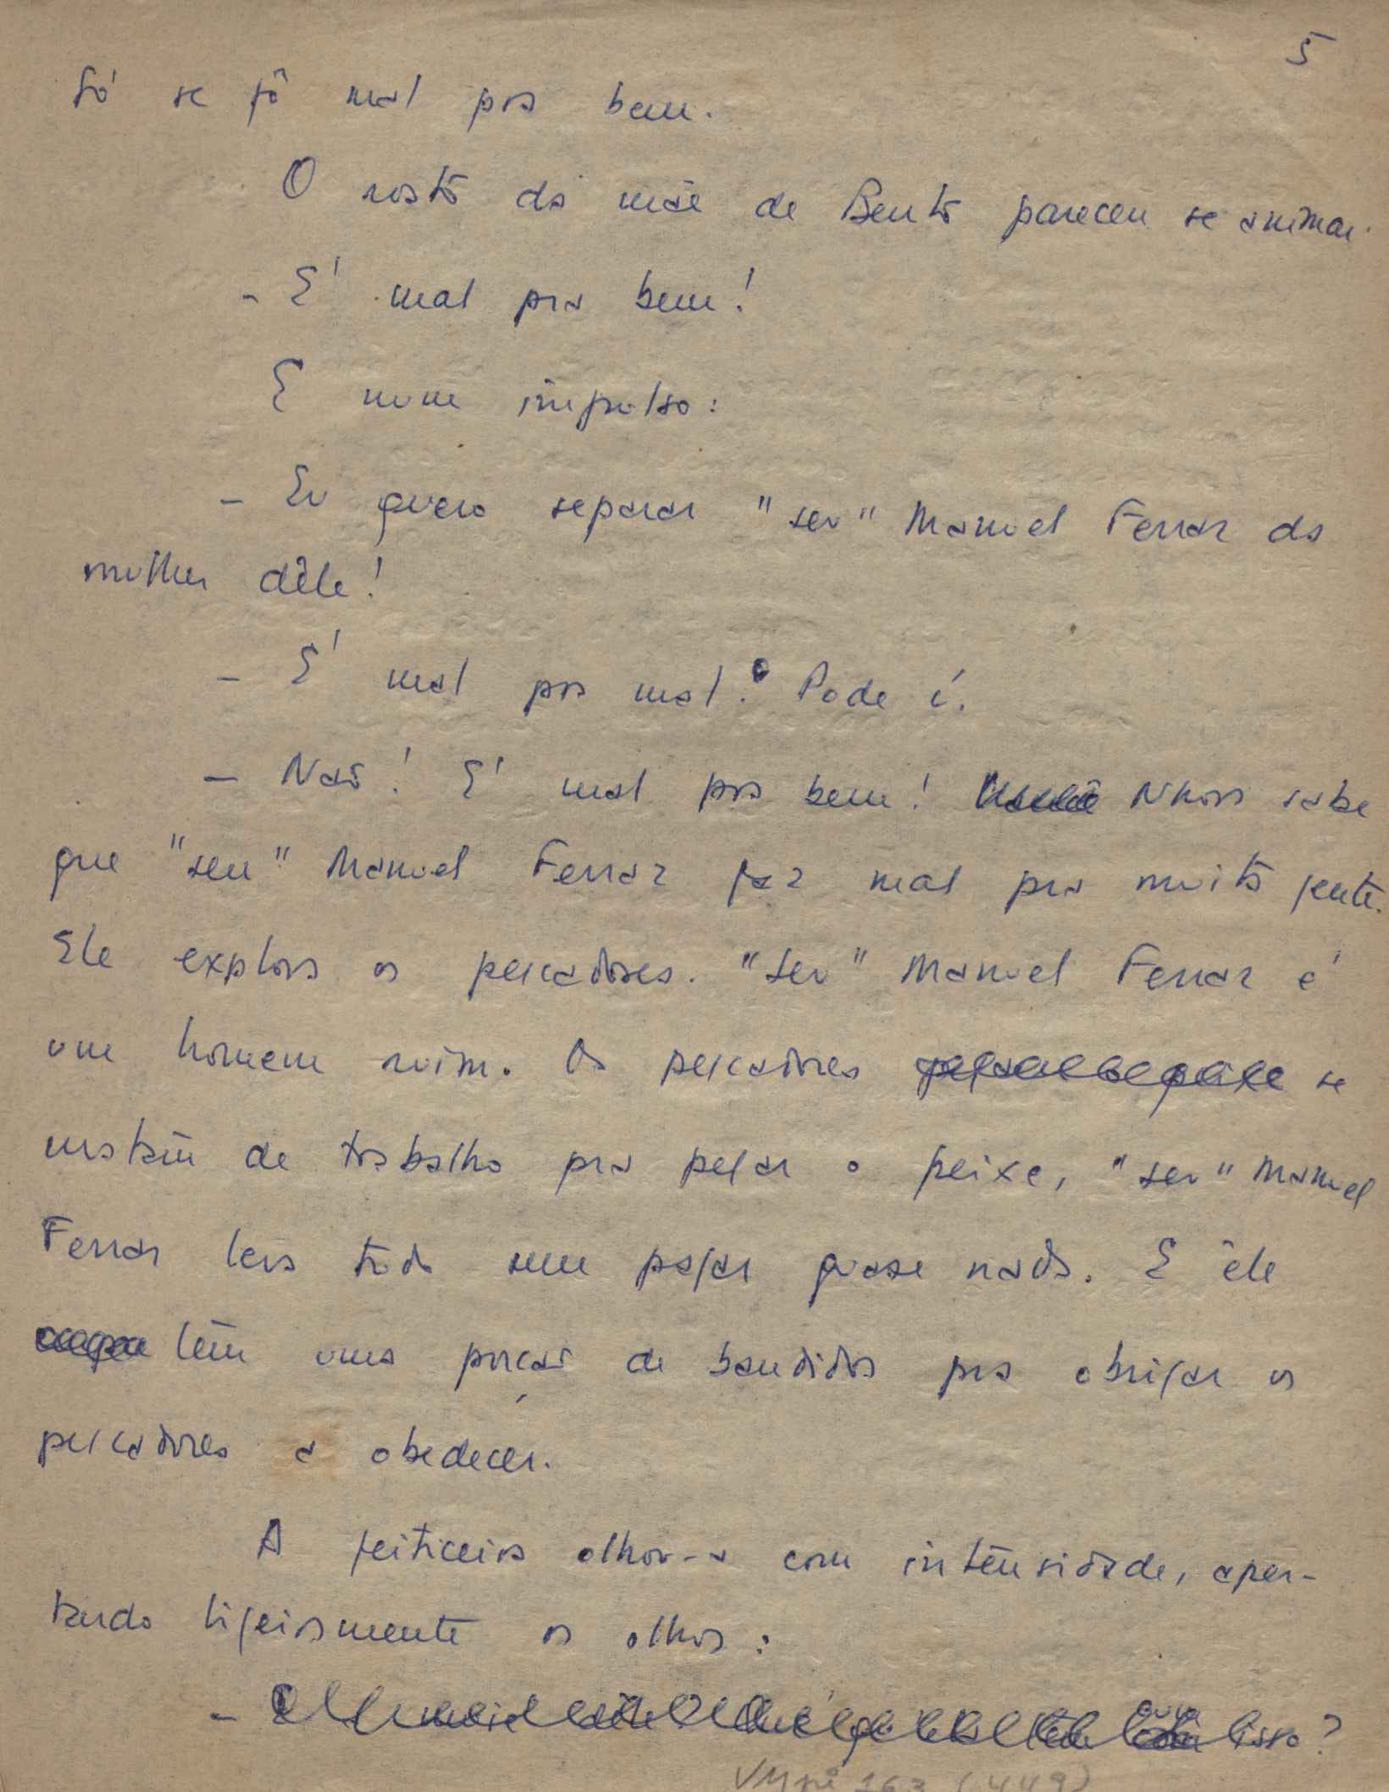 5
Só se fô mal pra bem.
O rosto da mãe de Bento pareceu se animar.
- É mal pra bem!
E num impulso:
- Eu quero separar "seu" Manuel Ferraz da
mulher dêle!
- É mal pra mal? Pode í.
- Não! É mal pra bem! Nhora sabe
que "seu" Manuel Ferraz faz mal pra muita gente.
Ele explora os pescadores. "Seu" Manuel Ferraz é
um homem ruim. Os pescadores se
matam de trabalho pra pegar o peixe, "seu" Manuel
Ferraz leva tudo sem pagar quase nada. E êle
tem uma porção de bandidos pra obrigar os
pescadores a obedecer.
A feiticeira olhou-a com intensidade, aper-
tando ligeiramente os olhos:
- isso?
163 (449)